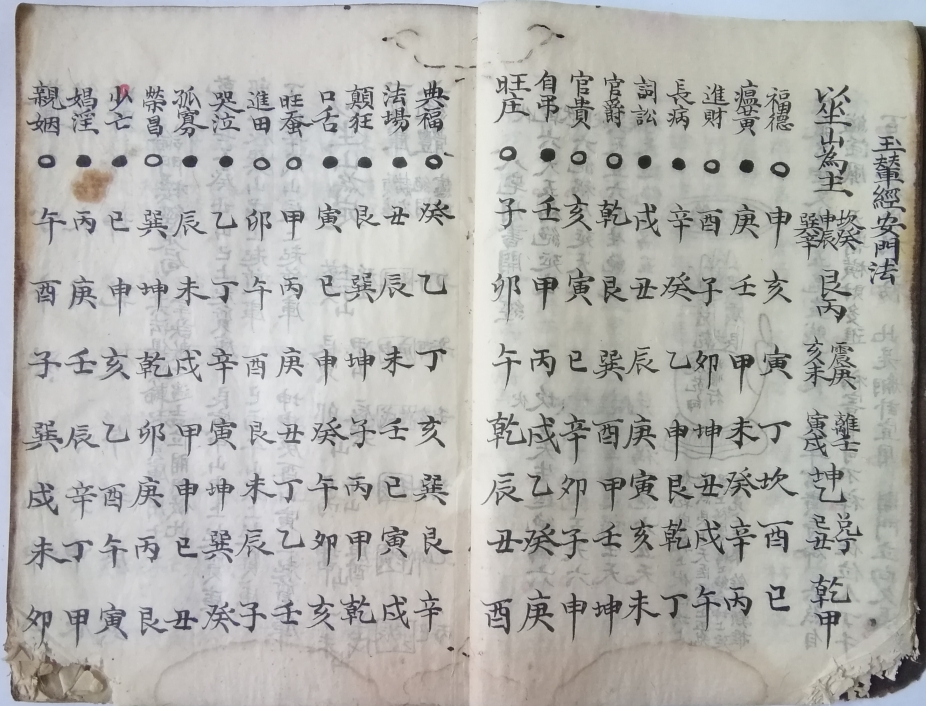 玉輦經安門法
以坐山為主 坎癸申辰巽辛 艮丙 震庚亥未 離壬寅戌 坤乙 兌丁巳丑 乾甲
福德○申亥寅丁坎酉巳
瘟黃●庚壬甲未癸辛丙
進財○酉子卯坤丑戌午
長病●辛癸乙申艮乾丁
詞訟●戌丑辰庚寅亥未
官爵○乾艮巽酉甲壬坤
官貴○亥寅巳辛卯子申
自吊●壬甲丙戌乙癸庚
旺庄○子卯午乾辰丑酉
典福○癸乙丁亥巽艮辛
法場●丑辰未壬巳寅戌
顛狂●艮巽坤子丙甲乾
口舌●寅巳申癸午卯亥
旺蚕○甲丙庚丑丁乙壬
進田○卯午酉艮未辰子
哭泣●乙丁辛寅坤巽癸
孤寡●辰未戌甲申巳丑
榮昌○巽坤乾卯庚丙艮
少亡●巳申亥乙酉午寅
娼淫●丙庚壬辰辛丁甲
親姻○午酉子巽戌未卯